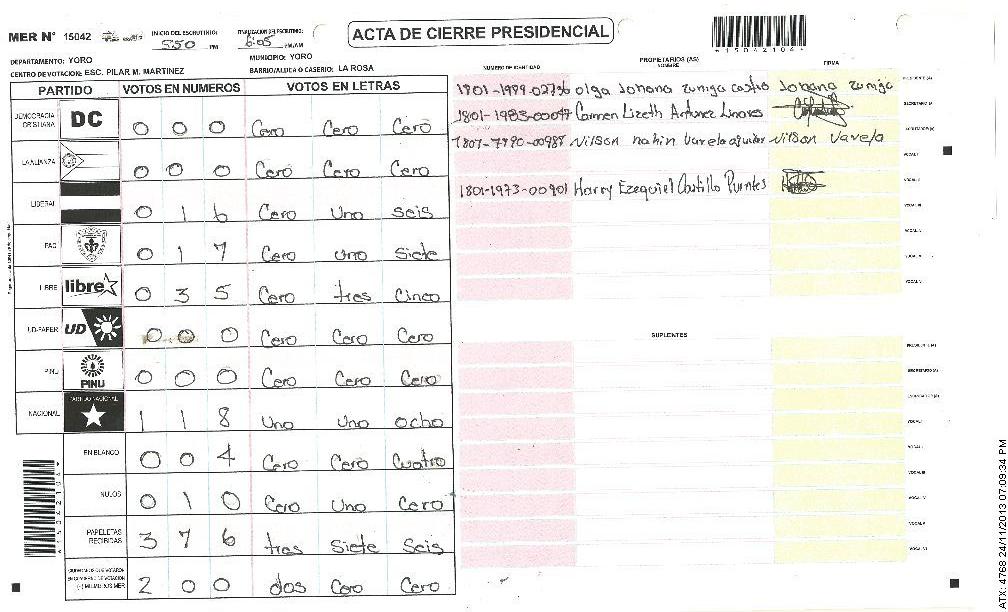 MER Nº 15042
INICIO DEL ESCRUTINIO: 5:50 PM
FINALIZACION DEL ESCRUTINIO: 6:05 PM/AM
ACTA DE CIERRE PRESIDENCIAL
*15042104*
DEPARTAMENTO: YORO
MUNICIPIO: YORO
CENTRO DE VOTACION: ESC. PILAR M. MARTINEZ
BARRIO/ALDEA O CASERIO: LA ROSA
PARTIDO VOTOS EN NUMEROS VOTOS EN LETRAS
DEMOCRACIA CRISTIANA DC 0 0 0 Cero Cero Cero
LA ALIANZA 0 0 0 Cero Cero Cero
LIBERAL 0 1 6 Cero Uno seis
PAC 0 1 7 Cero uno siete
LIBRE libre 0 3 5 Cero tres Cinco
UD-FAPER UD 0 0 0 Cero Cero Cero
PINU PINU 0 0 0 Cero Cero Cero
NACIONAL PARTIDO NACIONAL 1 1 8 Uno Uno ocho
EN BLANCO 0 0 4 Cero Cero Cuatro
NULOS 0 1 0 Cero Uno Cero
PAPELETAS RECIBIDAS 3 7 6 tres siete seis
CIUDADANOS QUE VOTARON EN CUADERNO DE VOTACION (+) MIEMBROS MER 2 0 0 dos Cero Cero
PROPIETARIOS (AS)
NUMERO DE IDENTIDAD NOMBRE FIRMA
1801-1989-02736 Olga Johana zuniga castro Johana zuniga PRESIDENTE (A)
1801-1983-00097 Carmen Lizeth Antunez Linares SECRETARIO (A)
1807-1990-00988 Nilson nahin Varela aguilar Nilson Varela ESCRUTADOR (A)
VOCAL I
1801-1973-00901 Harry Ezequiel Castillo Puentes VOCAL II
VOCAL III
VOCAL IV
VOCAL V
VOCAL VI
SUPLENTES
PRESIDENTE (A)
SECRETARIO (A)
ESCRUTADOR (A)
VOCAL I
VOCAL II
VOCAL III
VOCAL IV
VOCAL V
VOCAL VI
ATX: 4768 24/11/2013 07:09:34 PM